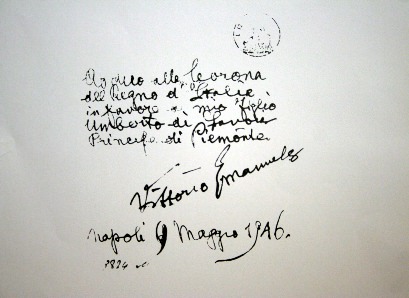 Abdico alla Corona
del Regno d'Italia
in favore di mio figlio
Umberto di Savoia
Principe di Piemonte.
Vittorio Emanuele
Napoli 9 Maggio 1946.